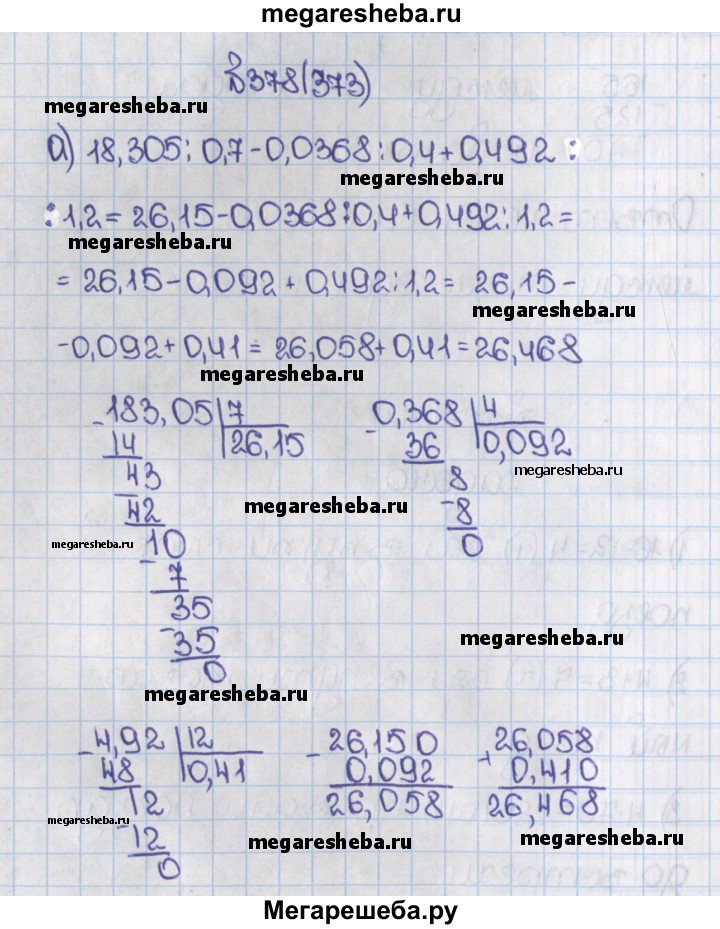 megaresheba.ru
№378(373)
megaresheba.ru
а) 18,305:0,7-0,0368:0,4+0,492:
megaresheba.ru
:1,2=26,15-0,0368:0,4+0,492:1,2=
megaresheba.ru
=26,15-0,092+0,492:1,2=26,15-
megaresheba.ru
-0,092+0,41=26,058+0,41=26,468
megaresheba.ru
-183,05|7
14
26,15
43
-
42
10
-
7
35
-35
0
-0,368|4
36
0,092
8
-8
0
megaresheba.ru
megaresheba.ru
megaresheba.ru
megaresheba.ru
megaresheba.ru
-4,92|12
48
0,41
12
-12
0
-26,150
0,092
26,058
+26,058
0,410
26,468
megaresheba.ru
megaresheba.ru
megaresheba.ru
Мегарешеба.ру